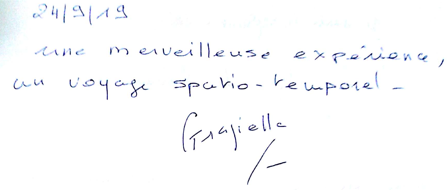 24/9/19
une merveilleuse expérience,
un voyage spatio-temporel -